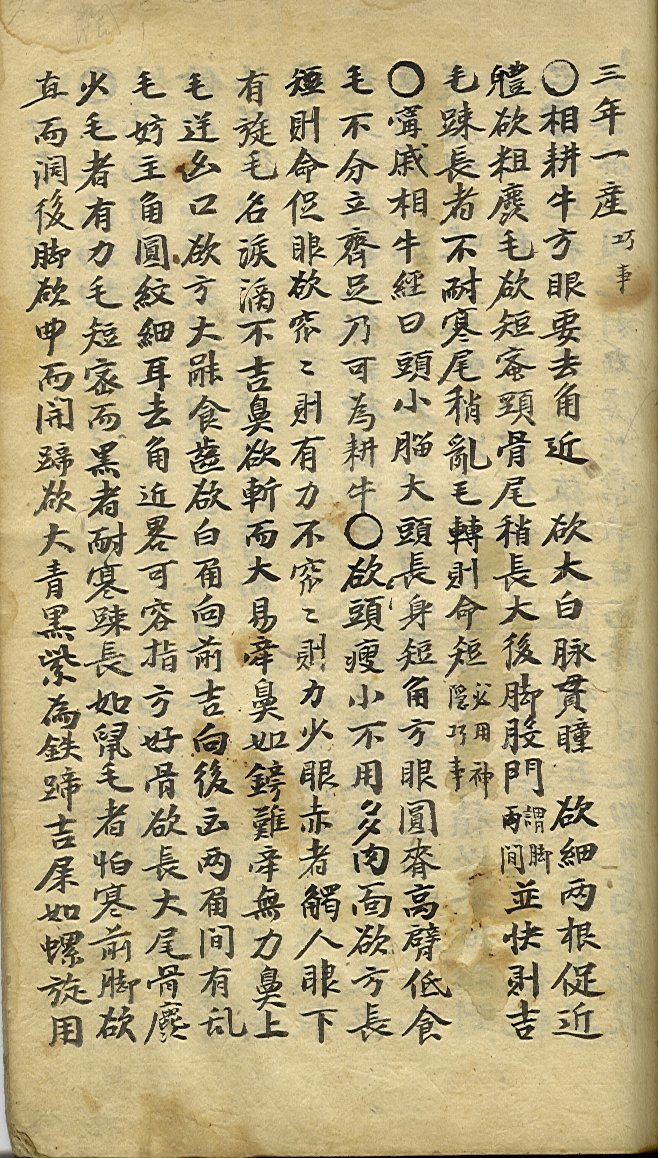 三年一産 巧事
〇相耕牛方眼要去角近 欲大白脉貫瞳 欲細两根促近
軆欲粗麤毛欲短密頸骨尾稍長大後脚股門謂脚两间並快則吉
毛踈長者不耐寒尾稍亂毛轉則命短必用神隠巧事
〇甯戚相牛經曰頭小腦大頭長身短角方眼圓脊高臂低食
毛不分立齊足乃可為耕牛〇欲頭瘦小不用多肉面欲方長
短則命促眼欲窄〻則有力不窄〻則力少眼赤者觸人眼下
有旋毛名淚滴不吉鼻欲斬而大易牽鼻如鏡難牽無力鼻上
毛逆凶口欲方大 食齒欲白 向前吉向後凶两 间有乱
毛妨主角圓紋細耳去角近畧可容指方好骨欲長大尾骨麤
少毛者有力毛短密而黒者耐寒踈長如鼠毛者怕寒前脚欲
直而濶後脚欲申而開蹄欲大青黒紫為鉄蹄吉屎如螺旋用